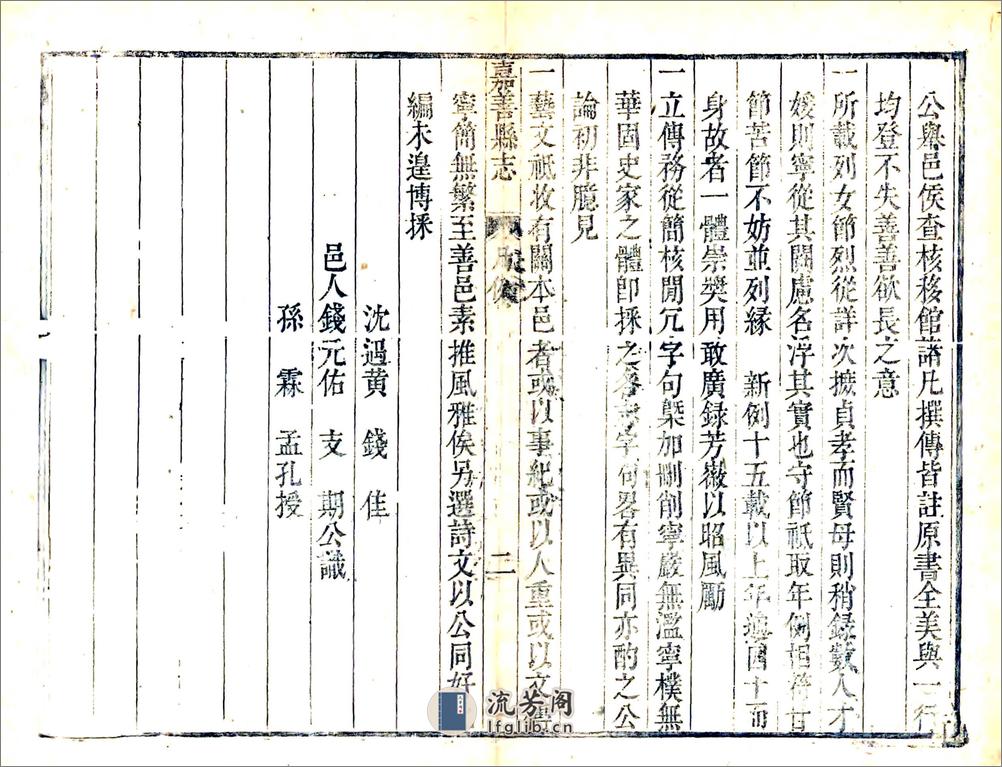 公舉邑侯查核移館諸凡撰傳皆註原書全美與一行
均登不失善善欲長之意
一所載列女節烈從詳次摭貞孝而賢母則稍錄數人才
媛則寧從其闕慮名浮其實也守節祇取年例相符苦
節苦節不妨並列緣 新例十五載以上年逾四十而
身故者一體崇獎用敢廣錄芳徽以昭風勵
一立傳務從簡核閒冗字句槩加刪削寧嚴無濫寧樸無
華固史家之體卽採之各字句畧有異同亦酌之公
論初非臆見
一藝文祇收有關本邑者或以事紀或以人重或以文
嘉善縣志 凡例 二
寧簡無繁至善邑素推風雅俟另選詩文以公同好
編未遑博採
沈過黃 錢佳
邑人錢元佑 支期公識
孫霖 孟孔授
流芳阁
lfglib.cn